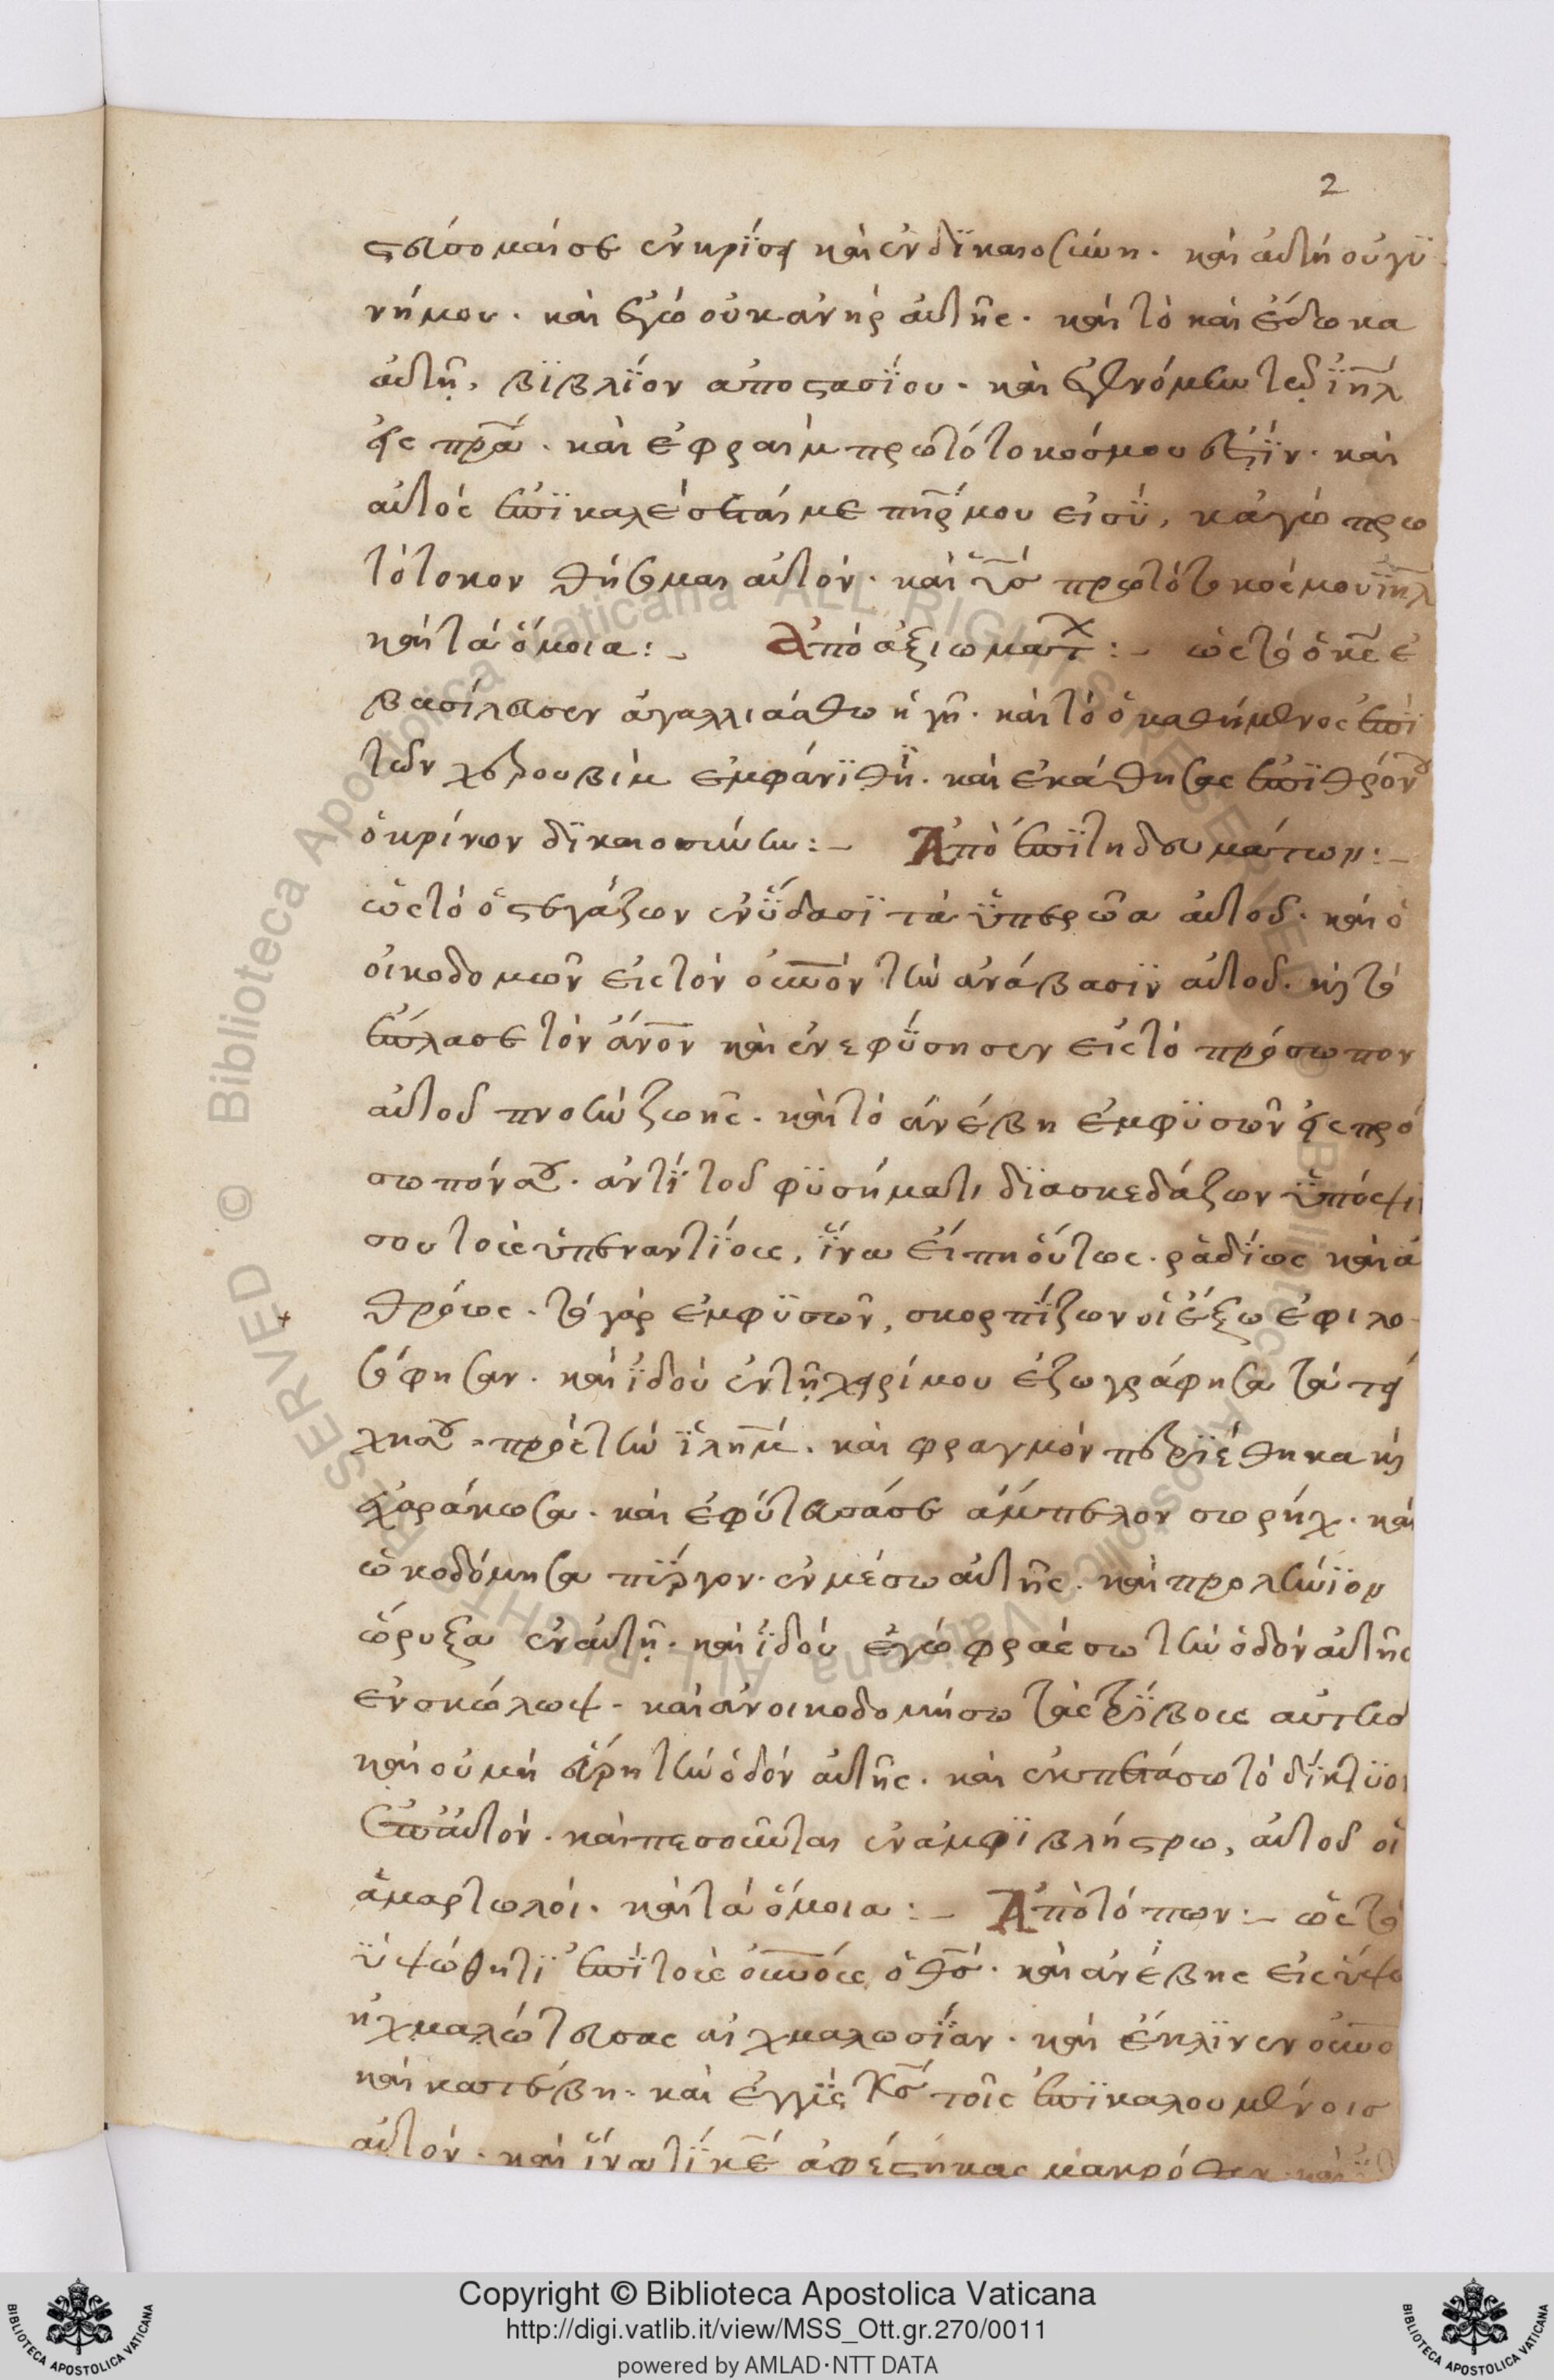 2
στεύσομαί σε ἐν κρίσει καὶ ἐν δϊκαιοσύνη. καὶ αὐτὴ οὐ γϋ
νή μου. καὶ ἐγὼ οὐκ ἀνὴρ αὐτῆς. καὶ τὸ καὶ ἔδωκα
αὐτῆ, βϊβλΐον ἀποστασΐου. καὶ ἐγενόμην τῶ ϊηλ
εἰς πρα. καὶ ἐφραὶμ πρωτότοκός μου ἐστΐν. καὶ
αὐτὸς ἐπϊκαλέσεταί με πηρ μου εἶ σϋ, κἀγὼ πρω
τότοκον θήσομαι αὐτόν. καὶ υσ πρωτότοκός μου ϊηλ
καὶ τὰ ὅμοια:- Ἀπὸ ἀξιωματ:- ὡς τὸ ὁ κς ἐ
βασίλευσεν ἀγαλλιάσθω ἡ γῆ. καὶ τὸ ὁ καθήμενος ἐπὶ
τῶν χερουβὶμ ἐμφάνϊθϊ. καὶ ἐκάθησας ἐπϊ θρόνου
ὁ κρίνων δϊκαιοσύνην:- Ἀπὸ ἐπϊτηδευμάτων:-
ὡς τὸ ὁ στεγάζων ἐν ϋδασϊ τὰ ϋπερῶα αὐτοῦ. καὶ ὁ
οἰκοδομῶν εἰς τὸν οὐνὸν τὴν ἀνάβασϊν αὐτοῦ. καὶ τὸ
ἔπλασε τὸν ἄνον καὶ ἐνεφϋσησεν εἰς τὸ πρόσωπον
αὐτοῦ πνοὴν ζωῆς. καὶ τὸ ἀνέβη ἐμφϋσῶν εἰς πρό
σωπόν σου. ἀντΐ τοῦ φϋσήματι δϊασκεδάζων ϋπόψι
σου τοὺς ὑπεναντΐους, ΐνα εἴπη οὕτως. ῥαδΐως καὶ ἀ
θρόως. τὸ γὰρ ἐμφϋσῶν, σκορπΐζων οἱ ἔξω ἐφιλο
σόφησαν. καὶ ϊδοὺ ἐν τῆ χειρί μου ἐζωγράφησα τὰ τεί
χη σου. πρὸς τὴν ϊλημ. καὶ φραγμὸν περϊέθηκα καὶ
ἐχαράκωσα. καὶ ἐφύτευσά σε ἄμπελον σωρήχ. καὶ
ὠκοδόμησα πΰργον. ἐν μέσω αὐτῆς. καὶ προλήνϊον
ὤρυξα ἐν αὐτῆ. καὶ ϊδοὺ ἐγὼ φράσσω τὴν ὁδὸν αὐτῆς
ἐν σκώλωψ. καὶ ἀνοικοδομήσω τὰς τρΐβους αὐτῆσ
καὶ οὐ μὴ εὕρη τὴν ὁδὸν αὐτῆς. καὶ ἐκπετάσω τὸ δΐκτϋον
ἐπ αὐτόν. καὶ πεσοῦνται ἐν ἀμφϊβλήστρω, αὐτοῦ οἱ
ἁμαρτωλοί. καὶ τὰ ὅμοια:- Ἀπὸ τόπων:- ὡς τὸ
ϋψώθητϊ ἐπΐ τοὺς οὐνοὺς ὁ θσ. καὶ ἀνέβης εἰς ὕψο
ἠχμαλώτευσας αἰχμαλωσΐαν. καὶ ἔκλϊνεν οὐνο
καὶ κατέβη. καὶ ἐγγϋς κσ τοῖς ἐπϊκαλουμένοισ
αὐτόν. καὶ ΐνα τΐ κε ἀφέστηκας μακρόθεν. καὶ